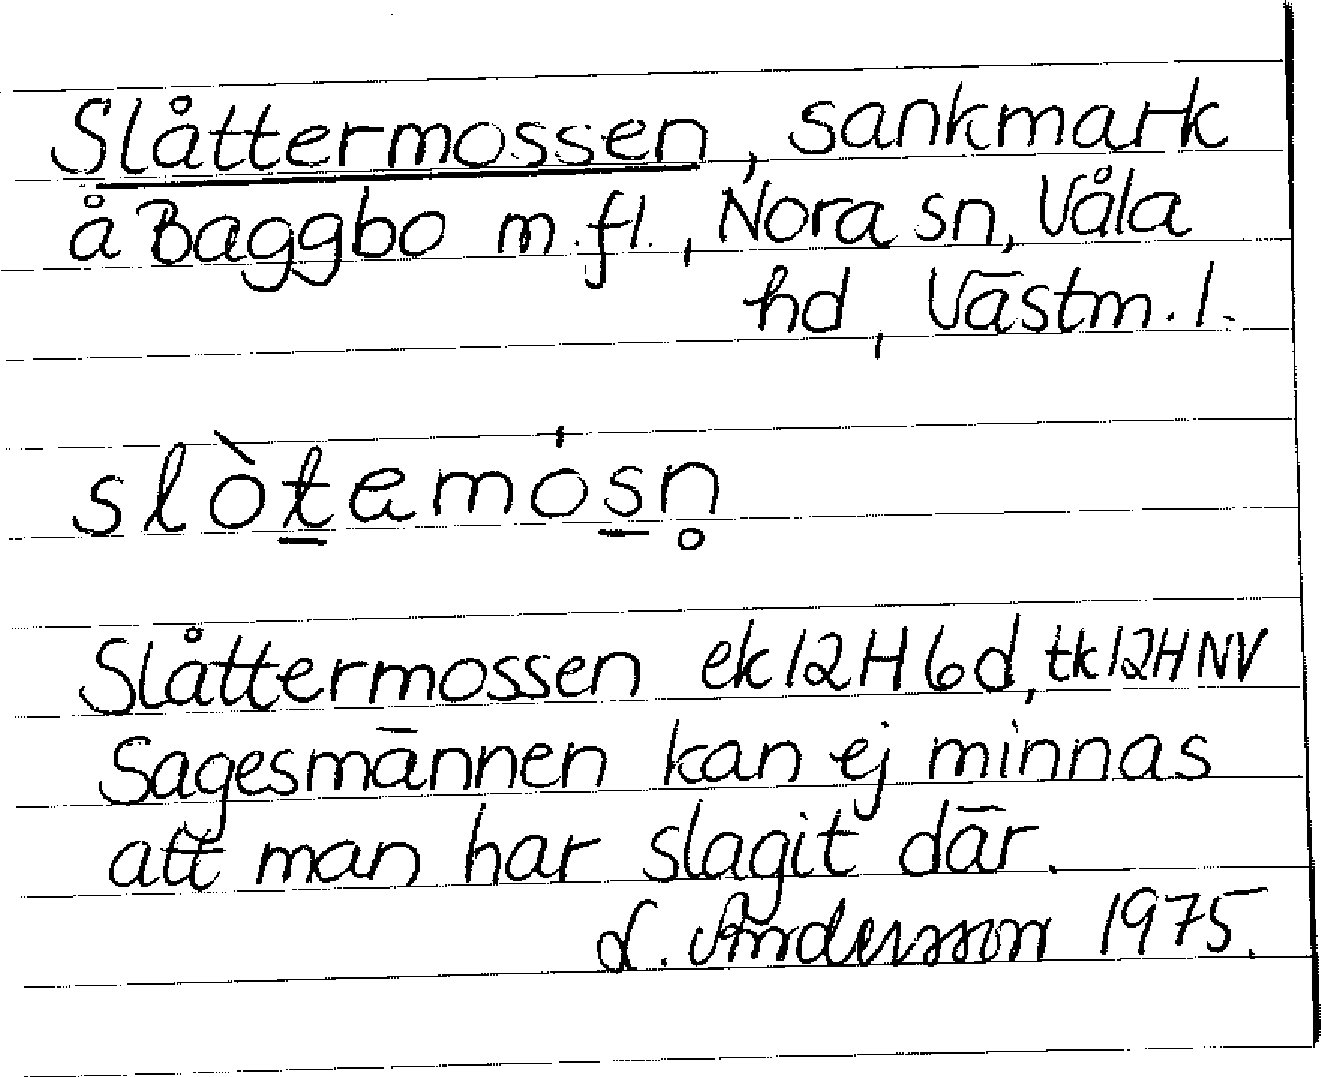 Slåttermossen, sankmark
å Baggbo m.fl., Nora sn, Våla
hd, Västm.l.
slòt̲amós̲n̥
Slåttermossen ek 12H6d, tk 12H NV
Sagesmännen kan ej minnas
att man har slagit där.
L. Andersson 1975.